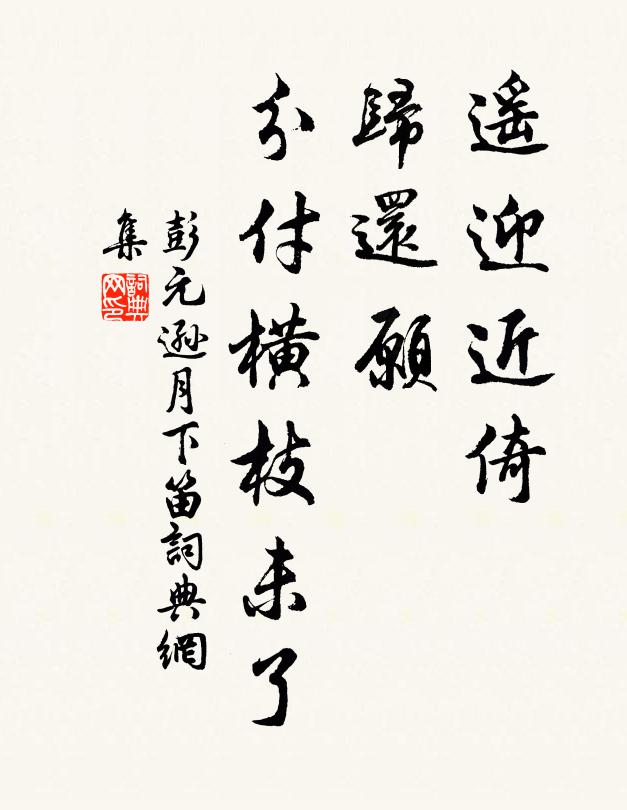 遥迎近倚
歸還願
分付横枝未了
彭元遜月下笛詞典網
集
詞典
网印